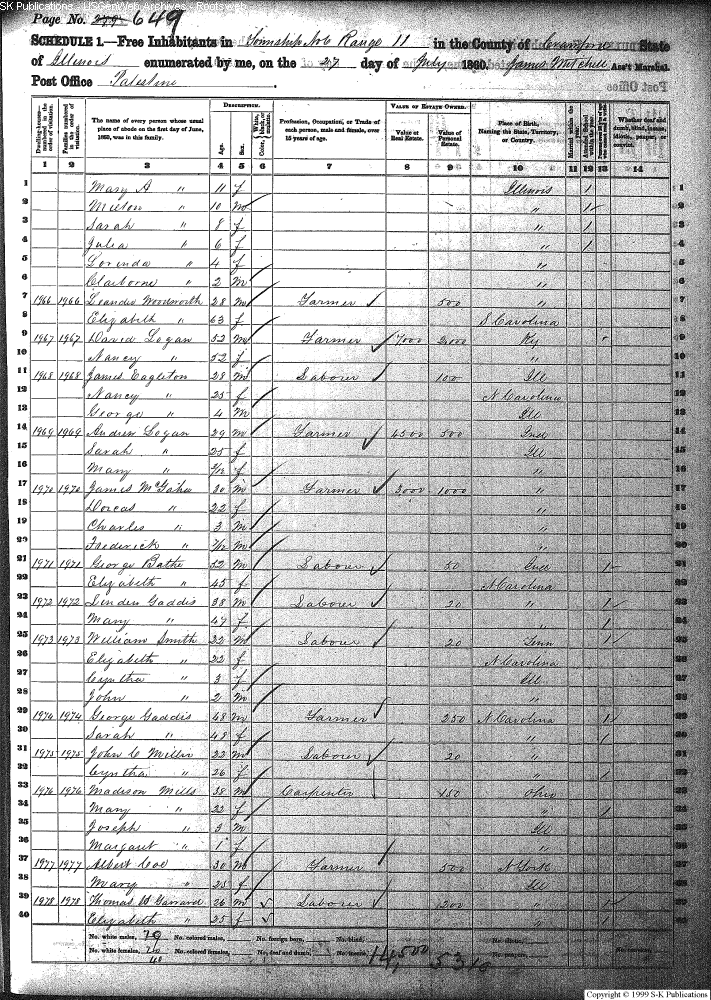 SK Publications - USGenWeb Archives - Rootsweb
Page No. 279 649
SCHEDULE 1.—Free Inhabitants in Township No 6 Range 11 in the County of Crawford State
of Illinois enumerated by me, on the 27 day of July 1860. James Mitchell Ass't Marshal.
Post Office Palestine
Dwelling-houses—numbered in the order of visitation.
Families numbered in the order of visitation.
The name of every person whose usual place of abode on the first day of June, 1860, was in this family.
DESCRIPTION.
Age.
Sex.
Color, White, black, or mulatto.
Profession, Occupation, or Trade of each person, male and female, over 15 years of age.
VALUE OF ESTATE OWNED.
Value of Real Estate.
Value of Personal Estate.
Place of Birth, Naming the State, Territory, or Country.
Married within the year.
Attended School within the year.
Whether deaf and dumb, blind, insane, idiotic, pauper, or convict.
1 2 3 4 5 6 7 8 9 10 11 12 13 14
1 Mary A " 11 f Illinois 1 1
2 Milton " 10 m " 1 2
3 Sarah " 8 f " 1 3
4 Julia " 6 f " 1 4
5 Lorinda " 4 f " 5
6 Claiborne " 2 m " 6
7 1966 1966 Leander Woodworth 28 m Farmer 500 " 7
8 Elizabeth " 63 f S Carolina 8
9 1967 1967 David Logan 52 m Farmer 7000 2000 Ky 9
10 Nancy " 52 f " 10
11 1968 1968 James Eagleton 28 m Labourer 100 Ill 11
12 Nancy " 25 f N Carolina 12
13 George " 4 m Ill 13
14 1969 1969 Andrew Logan 29 m Farmer 4500 500 Ind 14
15 Sarah " 25 f Ill 15
16 Mary " f " 16
17 1970 1970 James McGahu 30 m Farmer 3000 1000 " 17
18 Dorcas " 22 f " 18
19 Charles " 3 m " 19
20 Frederick " m " 20
21 1971 1971 George Bathe 52 m Labourer 50 Ind 1 21
22 Elizabeth " 45 f N Carolina 22
23 1972 1972 Linden Gaddis 38 m Labourer 20 " 1 23
24 Mary " 47 f " 1 24
25 1973 1973 William Smith 22 m Labourer 20 Tenn 1 25
26 Elizabeth " 22 f N Carolina 26
27 Cyntha " 3 f Ill 27
28 John " 2 m " 28
29 1974 1974 George Gaddis 48 m Farmer 250 N Carolina 1 29
30 Sarah " 48 f " 1 30
31 1975 1975 John C Miller 22 m Labourer 20 " 31
32 Cyntha " 26 f " 1 32
33 1976 1976 Madison Mills 38 m Carpenter 150 Ohio 33
34 Mary " 22 f " 1 34
35 Joseph " 3 m Ill 35
36 Margaret " 1 f " 36
37 1977 1977 Albert Coe 30 m Farmer 500 N York 37
38 Mary " 23 f Ill 38
39 1978 1978 Thomas W Garrard 26 m Labourer 200 " 1 39
40 Elizabeth " 25 f " 1 40
No. white males, No. colored males, No. foreign born, No. blind, 14,500 5310 No. idiotic,
No. white females, No. colored females, No. deaf and dumb, No. insane, No. paupers, No. convicts,
40
Copyright © 1999 S-K Publications